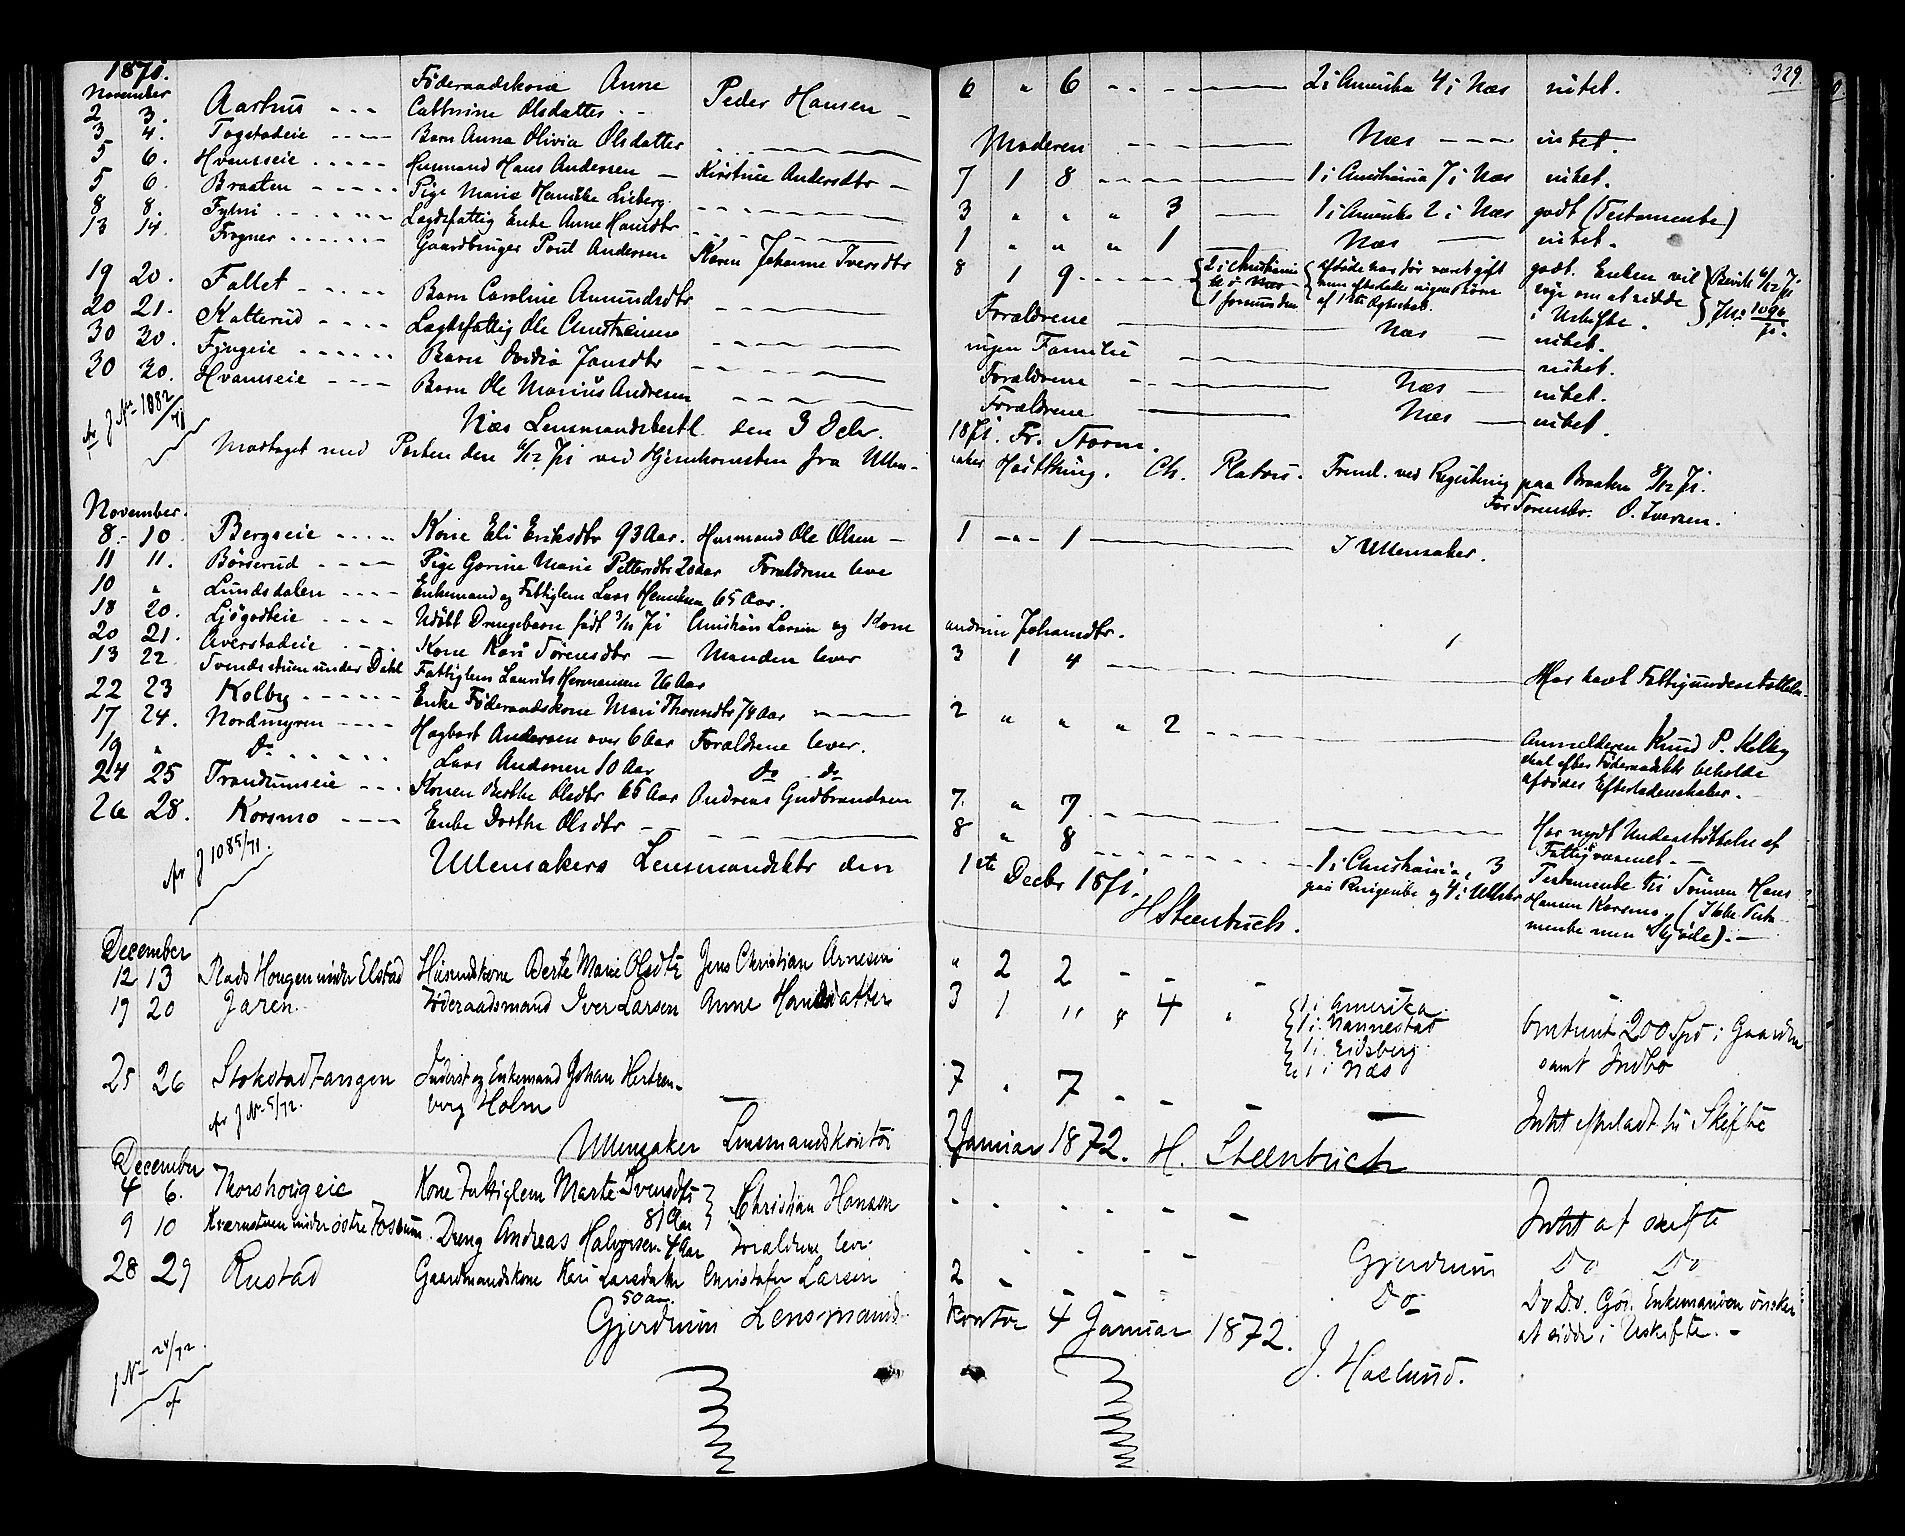 329.
1871.
November
2 3. Aarhus Føderaadskone Anne Cathrine Olsdatter Peder Hansen 6 " 6 2 i Amerika 4 i Næs intet.
3 4. Togstadeie Barn Anna Olivia Olsdatter Moderen Næs intet.
5 6. Hvamseie Husmand Hans Andersen Kirstine Andersdtr 7 1 8 1 i Christiania 7 i Næs intet.
5 6. Braaten Pige Marie Henrikke Lieberg 3 " " " 3 1 i Amerika 2 i Næs godt (Testamente)
8 8. Fylni Lægdsfattig Enke Anne Hansdtr 1 " " " 1 Næs intet.
13 14. Frogner Gaardbruger Poul Andersen Karen Johanne Iversdtr 8 1 9 2 i Christiania 1 formunden
Afdøde har før været gift men efterlader ingen Børn af 1ste Ægteskab.
godt. Enken vil søge om at sidde i Uskifte. Bevilt 6/12 71 J.No 1090/71.
19 20. Fallet Barn Caroline Amundsdtr Forældrene Næs intet.
20 21. Katterud Lægdsfattig Ole Christensen ingen Familie intet.
30 30. Fjngeie Barn Josdia Jansdtr Forældrene Næs intet.
30 30. Hvamseie Barn Ole Marius Andresen Forældrene Næs intet.
J No 1082/71
Næs Lensmandsbestl. den 3 Decbr. 1871. Fr. Storm.
Modtaget med Posten den 6/12 71 ved Hjemkomsten fra Ullensaker Høstthing. Ch. Platou. Freml. ved Registering paa Braaten 8/12 71.
For Sorenskr. O. Iversen.
November.
8. 10. Bergseie Kone Eli Eriksdtr 93 Aar. Husmand Ole Olsen 1 " 1 I Ullensaker.
11 11. Børserud Pige Gorine Marie Pettersdtr 20 aar Forældrene leve
10 " Lundsdalen Enkemand og Fattiglem Lars Henriksen 65 Aar.
18 20. Ljøgodteie Udøbt Drengebarn født 3/11 71 Christian Larsen og Kone andrine Johansdtr.
20 21. Averstadeie Kone Kari Sørensdtr Manden lever 3 1 4
13 22 Svendsstuen under Dahl Fattiglem Laurits Hermansen 26 Aar Har havt Fattigunderstøttelse.
22 23 Kolby Enke Føderaadskone Mari Thoresdtr 78 Aar 2 " " " 2 Anmelderen Knud P. Kolby skal efter Føderaadsbr. beholde afdødes Efterladenskaber.
17 24. Nordmyren Hagbart Andersen over 6 Aar Forældrene lever.
19 " do Lars Andersen 10 Aar do do
24 25 Trandumseie Konen Berthe Olsdtr 66 Aar Andreas Gudbrandsen 7. " 7 Har nydt Understøttelse af Fattigvæsenet.
26 28. Korsmo Enke Dorthe Olsdtr 8 " 8 1 i Christiania, 3 paa Ringerike og 4 i Ullskr Testamente til Sønnen Hans Hansen Korsmo, (Ikke Testamente men Skjøde).
J 1085/71.
Ullensakers Lensmandsktr den 1ste Decbr 1871. H Steenbuch.
December
12 13 Plads Hougen under Elstad Husmdskone Berte Marie Olsdtr Jens Christian Arnesen " 2 2
19 20 Jaren Føderaadsmand Iver Larsen Anne Hansdatter 3 1 " " 4 " 1 i Amerika. 1 i Nannestad 1 i Eidsberg 1 i Næs Omtrent 200 Spd i Gaarden samt Indbo
25 26 Stokstadtangen Inderst og Enkemand Johan Hertzenberg Holm 7 " 7 Intet efterladt til Skifte
J No 5/72.
Ullensaker Lensmandskontor 2 Januar 1872. H. Steenbuch
December
4 6. Thorshougeie Kone Fattiglem Marte Svendsdtr 81 Aar Christian Hansen Intet at skifte
9 10 Kværnstuen under østre Fossum. Dreng Andreas Halvorsen 4 Aar Forældrene leve. Gjerdrum Do Do
28 29 Rustad Gaardmandskone Kari Larsdatter 50 aar. Christofer Larsen 2 Do Do Do. Enkemanden ønsker at sidde i Uskifte.
Gjerdrum Lensmandskontor 4 Januar 1872. J. Haslund.
J No 24/72